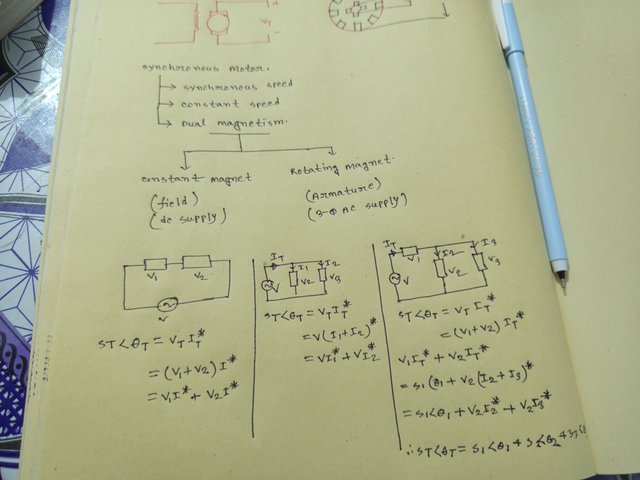 IT
V
synchronous motor.
→ synchronous speed
→ constant speed
→ Dual magnetism.
constant magnet
(field)
(dc supply)
Rotating magnet.
(Armature)
(3-Φ AC supply)
V1 V2
V
ST<θT = VT IT*
= (V1+V2) I*
= V1I* + V2I*
IT
I1 I2
V V2 V3
ST<θT = VT IT*
= V(I1+I2)*
= VI1* + VI2*
IT V1 I2 I3
V V2 V3
ST<θT = VT IT*
= (V1+V2) IT*
V1IT* + V2IT*
= S1(θ1 + V2(I2+I3)*
= S1<θ1 + V2I2* + V2I3*
∴ ST<θT = S1<θ1 + S2<θ2 + S3<θ